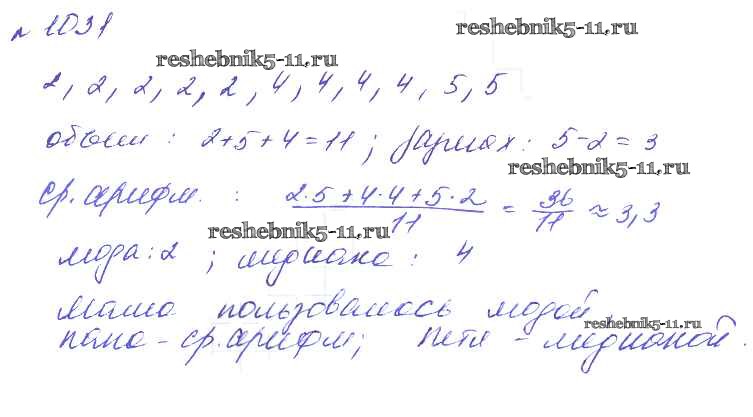 № 1031
reshebnik5-11.ru
reshebnik5-11.ru
2, 2, 2, 2, 2, 4, 4, 4, 4, 5, 5
объем : 2+5+4=11 ; размах : 5-2=3
reshebnik5-11.ru
ср. арифм. : 2·5+4·4+5·2 / 11 = 36/11 ≈ 3,3
reshebnik5-11.ru
мода : 2 ; медиана : 4
мама пользовалась модой,
reshebnik5-11.ru
папа - ср. арифм; Петя - медианой.